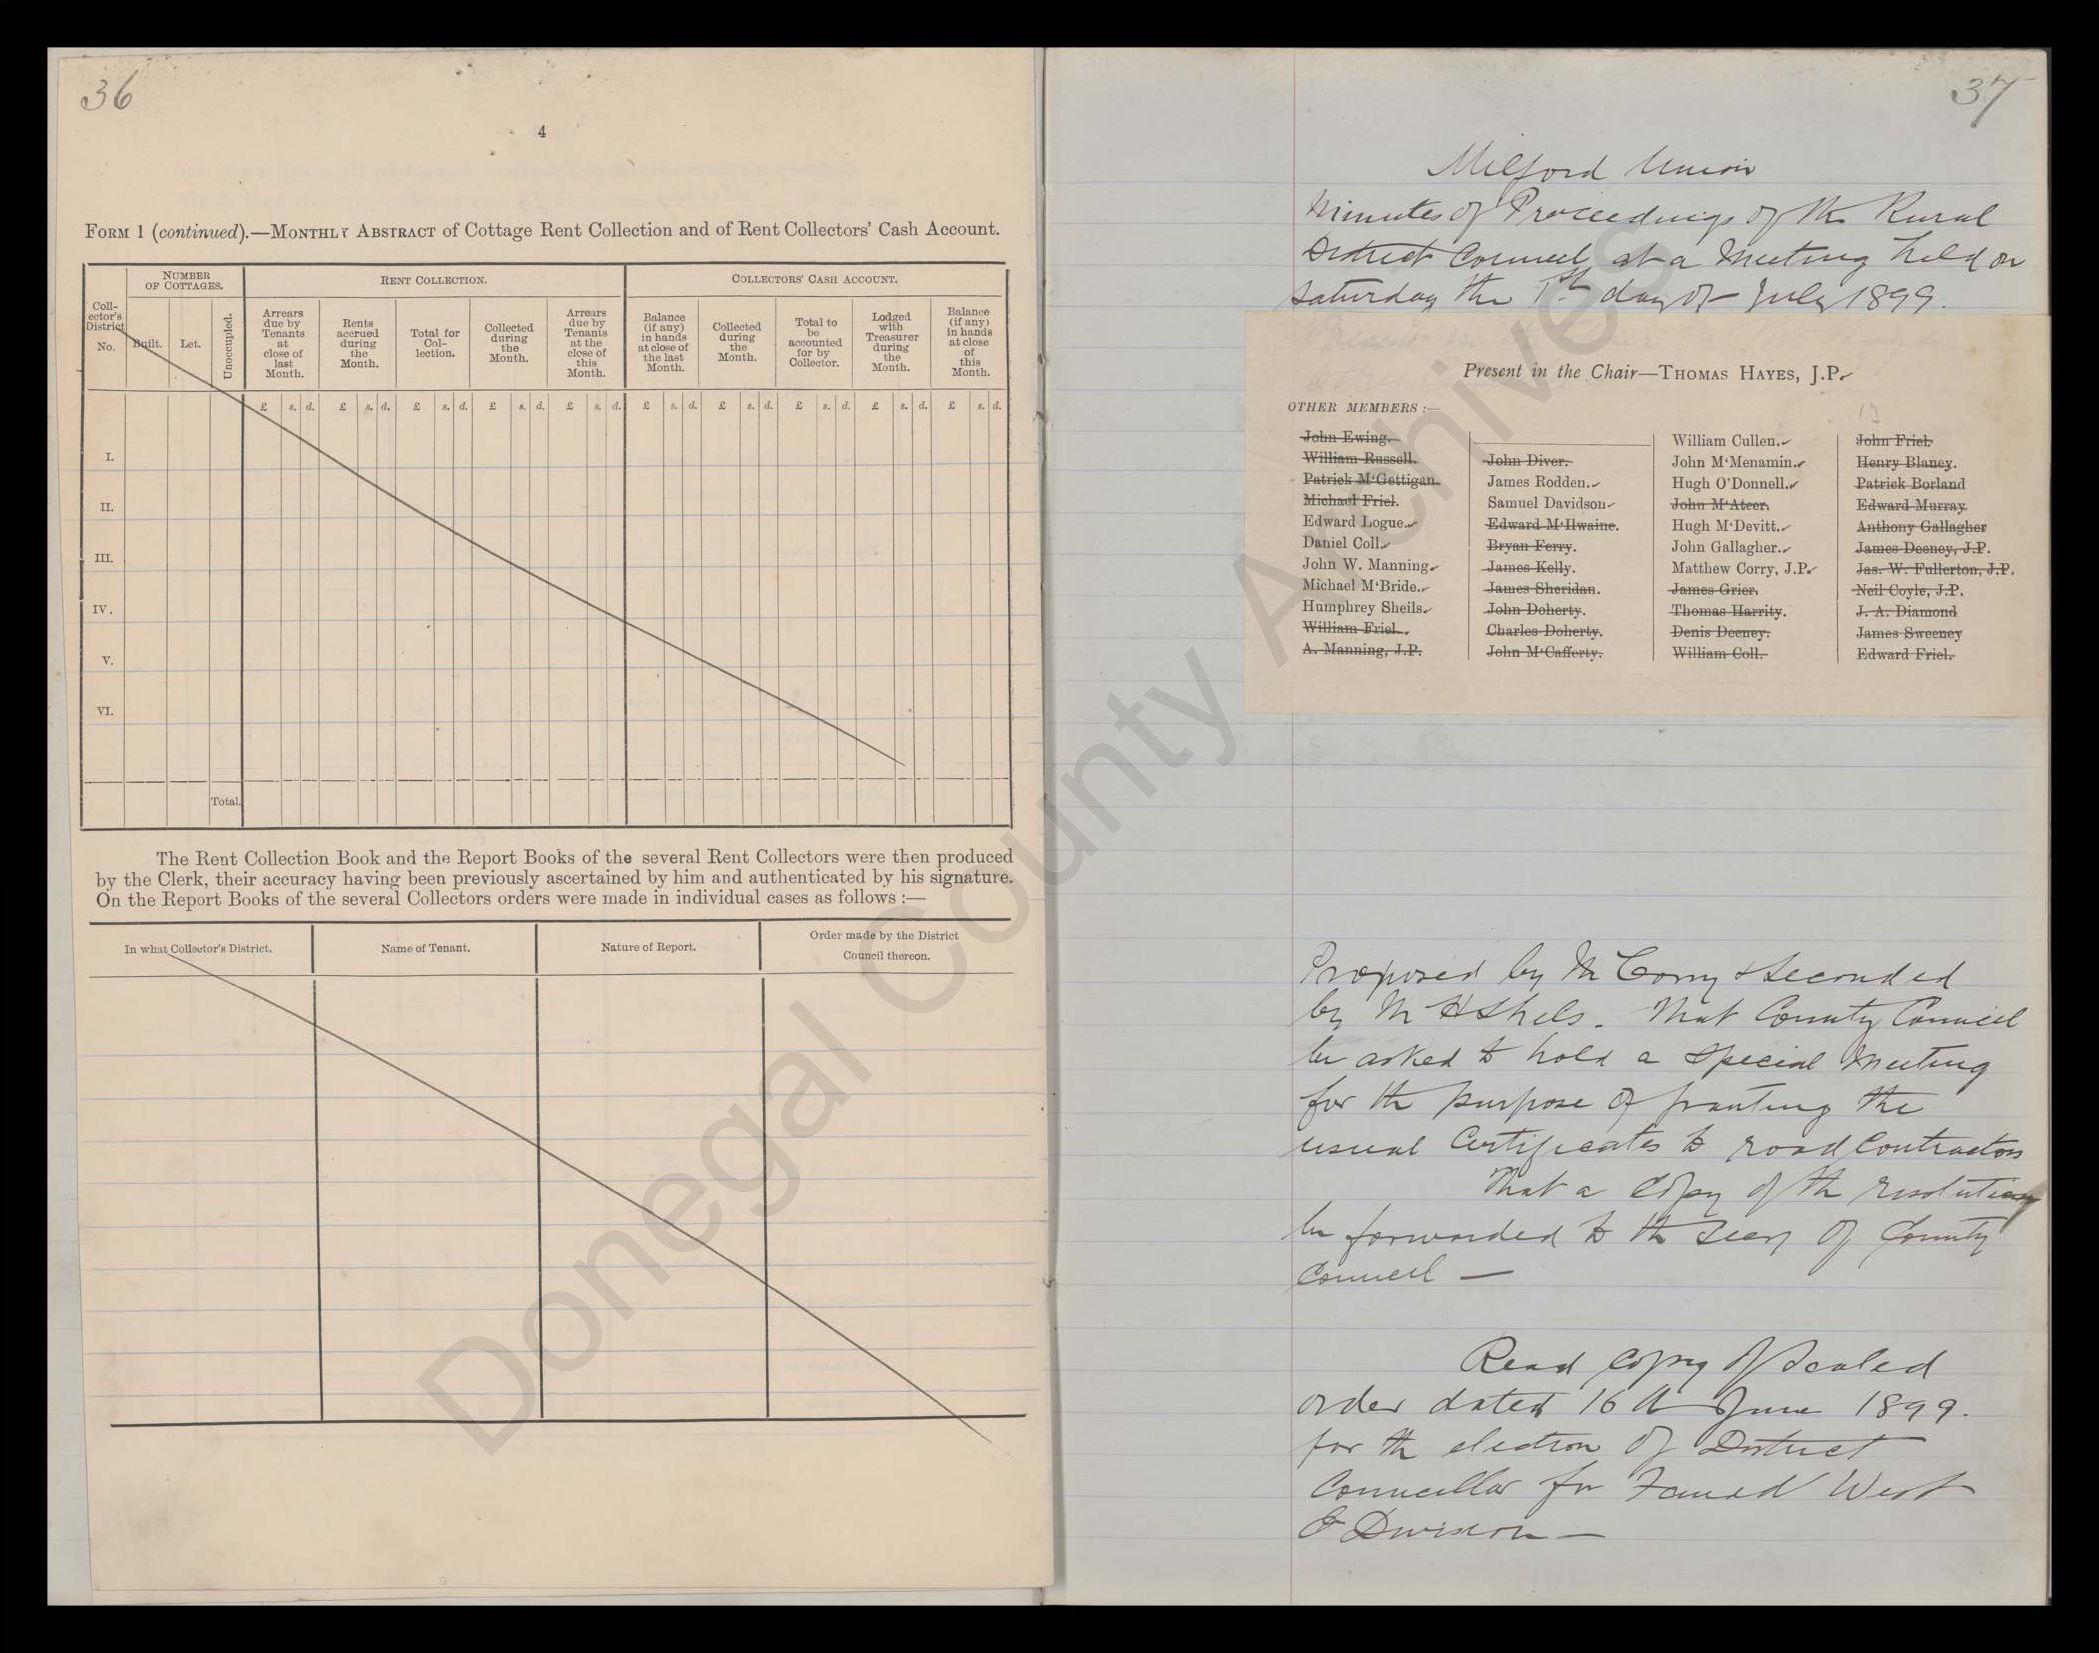 36
4
FORM 1 (continued).—MONTHLY ABSTRACT of Cottage Rent Collection and of Rent Collectors' Cash Account.
NUMBER OF COTTAGES.
RENT COLLECTION.
COLLECTORS' CASH ACCOUNT.
Collector's District No.
Built.
Let.
Unoccupied.
Arrears due by Tenants at close of last Month.
Rents accrued during the Month.
Total for Collection.
Collected during the Month.
Arrears due by Tenants at the close of this Month.
Balance (if any) in hands at close of the last Month.
Collected during the Month.
Total to be accounted for by Collector.
Lodged with Treasurer during the Month.
Balance (if any) in hands at close of this Month.
£ s. d. £ s. d. £ s. d. £ s. d. £ s. d. £ s. d. £ s. d. £ s. d. £ s. d. £ s. d.
I.
II.
III.
IV.
V.
VI.
Total.
The Rent Collection Book and the Report Books of the several Rent Collectors were then produced
by the Clerk, their accuracy having been previously ascertained by him and authenticated by his signature.
On the Report Books of the several Collectors orders were made in individual cases as follows :—
In what Collector's District.
Name of Tenant.
Nature of Report.
Order made by the District Council thereon.
37
Milford Union
Minutes of Proceedings of the Rural
District Council at a Meeting held on
Saturday the 1st day of July 1899.
Present in the Chair—THOMAS HAYES, J.P.
OTHER MEMBERS :—
John Ewing.
William Russell.
Patrick M'Gettigan.
Michael Friel.
Edward Logue.
Daniel Coll.
John W. Manning.
Michael M'Bride.
Humphrey Sheils.
William Friel.
A. Manning, J.P.
John Diver.
James Rodden.
Samuel Davidson
Edward M'Ilwaine.
Bryan Ferry.
James Kelly.
James Sheridan.
John Doherty.
Charles Doherty.
John M'Cafferty.
William Cullen.
John M'Menamin.
Hugh O'Donnell.
John M'Ateer.
Hugh M'Devitt.
John Gallagher.
Matthew Corry, J.P.
James Grier.
Thomas Harrity.
Denis Deeney.
William Coll.
13
John Friel.
Henry Blaney.
Patrick Borland
Edward Murray
Anthony Gallagher
James Deeney, J.P.
Jas. W. Fullerton, J.P.
Neil Coyle, J.P.
J. A. Diamond
James Sweeney
Edward Friel.
Proposed by Mr Corry & seconded
by Mr H Shels. That County Council
be asked to hold a special Meeting
for the purpose of granting the
usual Certificates to road Contractors
That a copy of the resolution
be forwarded to the Secy of County
Council —
Read copy of sealed
order dated 16th June 1899.
for the election of District
Councillor for Fanad West
E Division —
Donegal County Archives